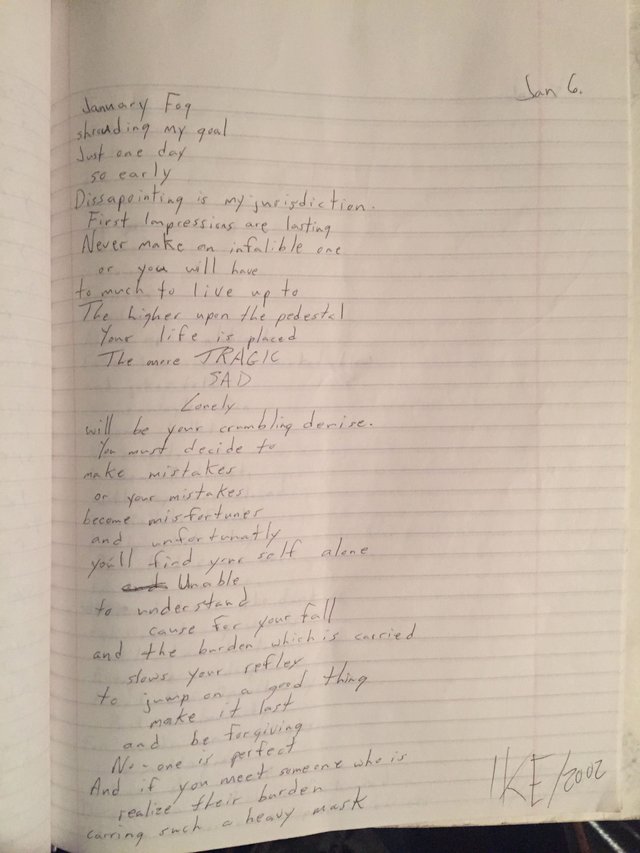 Jan 6.
January Fog
shrouding my goal
Just one day
so early
Dissapointing is my jurisdiction.
First Impressions are lasting
Never make an infalible one
or you will have
to much to live up to
The higher upon the pedestal
Your life is placed
The more TRAGIC
SAD
Lonely
will be your crumbling demise.
You must decide to
make mistakes
or your mistakes
become misfortunes
and unfortunatly
you'll find your self alone
and Unable
to understand
cause for your fall
and the burden which is carried
slows your reflex
to jump on a good thing
make it last
and be forgiving
No-one is perfect
And if you meet someone who is
realize their burden
carring such a heavy mask
IKE/2002